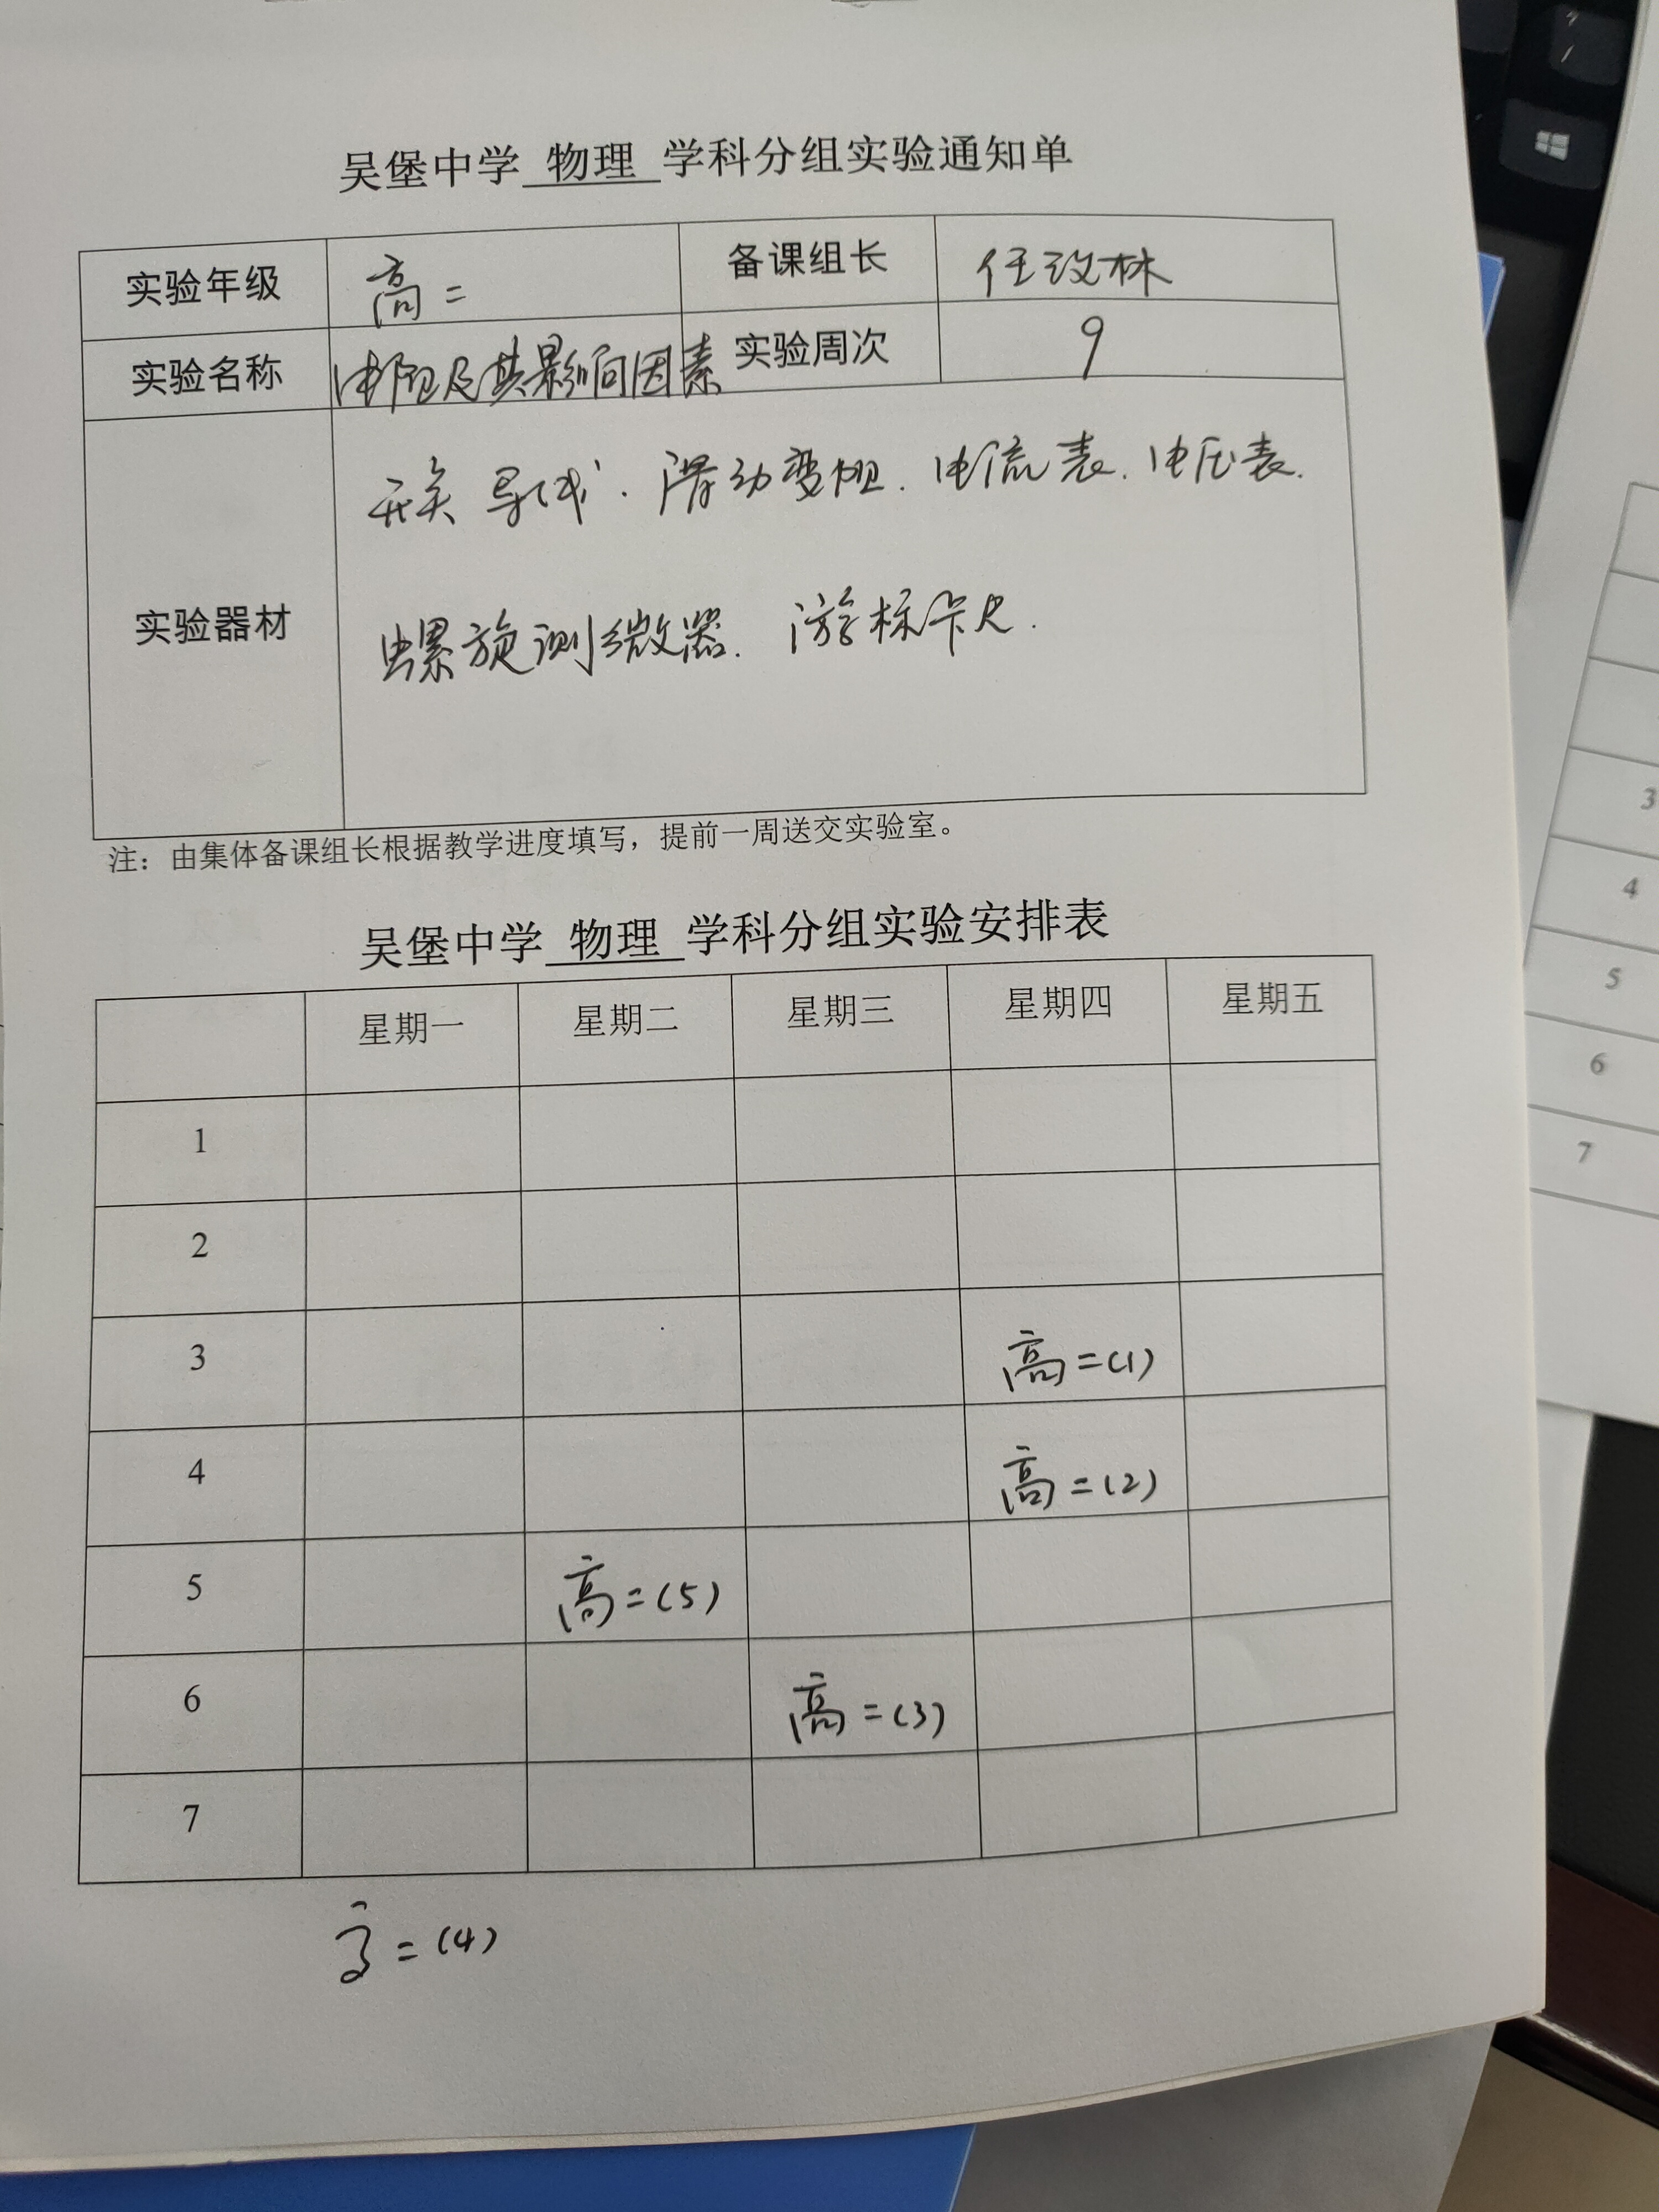 吴堡中学 物理 学科分组实验通知单
实验年级 高二 备课组长 任改林
实验名称 电阻及其影响因素 实验周次 9
实验器材
开关 导线. 滑动变阻. 电流表. 电压表.
螺旋测微器. 游标卡尺.
注：由集体备课组长根据教学进度填写，提前一周送交实验室。
吴堡中学 物理 学科分组实验安排表
星期一 星期二 星期三 星期四 星期五
1
2
3 高二(1)
4 高二(2)
5 高二(5)
6 高二(3)
7
高二(4)
3
4
5
6
7